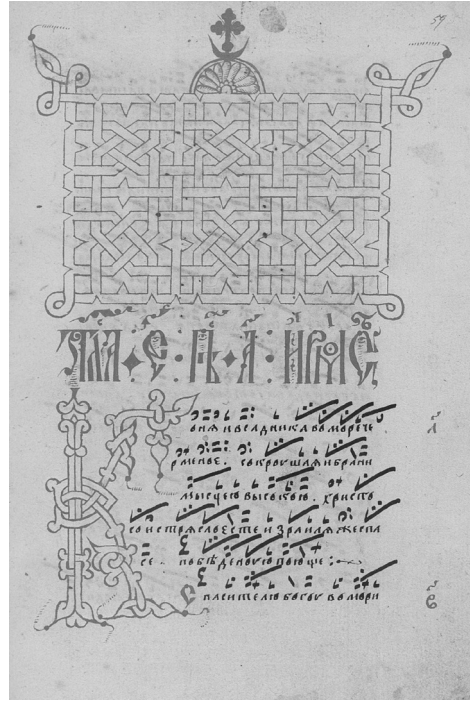 59
ГЛА · Е · ПѢ · А · ІРМОС
Коня и всадника во море че
рменое . сокроушаяи брани
мышцею высокою . христъ
со истрясло есте израиля же спа
се . побѣденоую поюще :
Спасителю богоу во мори